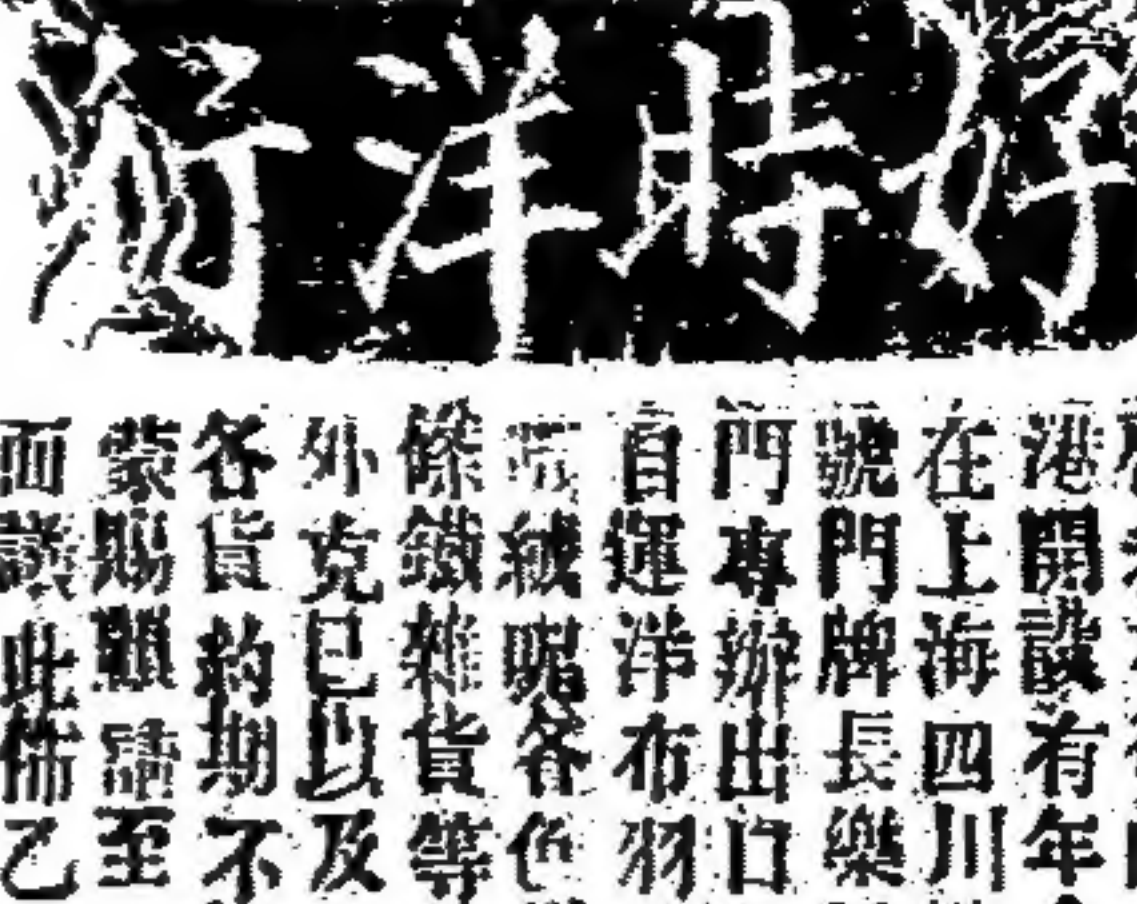 好時洋行
港開設有年
在上海四川
號門牌長樂
門專辦出口
自運洋布羽
絨呢各色
條鐵雜貨等
外克已以及
各貨約期不
蒙賜顧請至
面談此佈乙